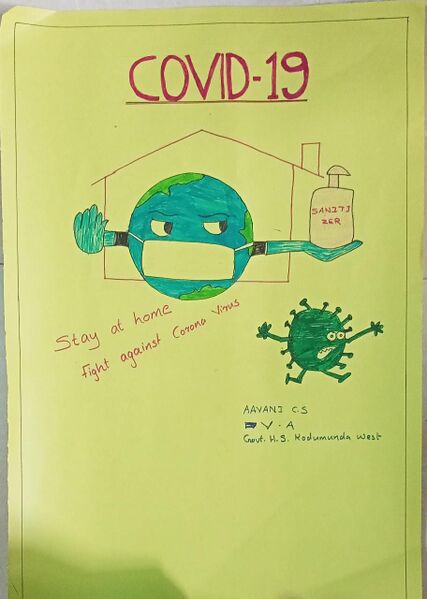 COVID-19
SANITI
ZER
Stay at home
Fight against Corona Virus
AAVANI C.S
V - A
Govt. H.S. Kodumunda West